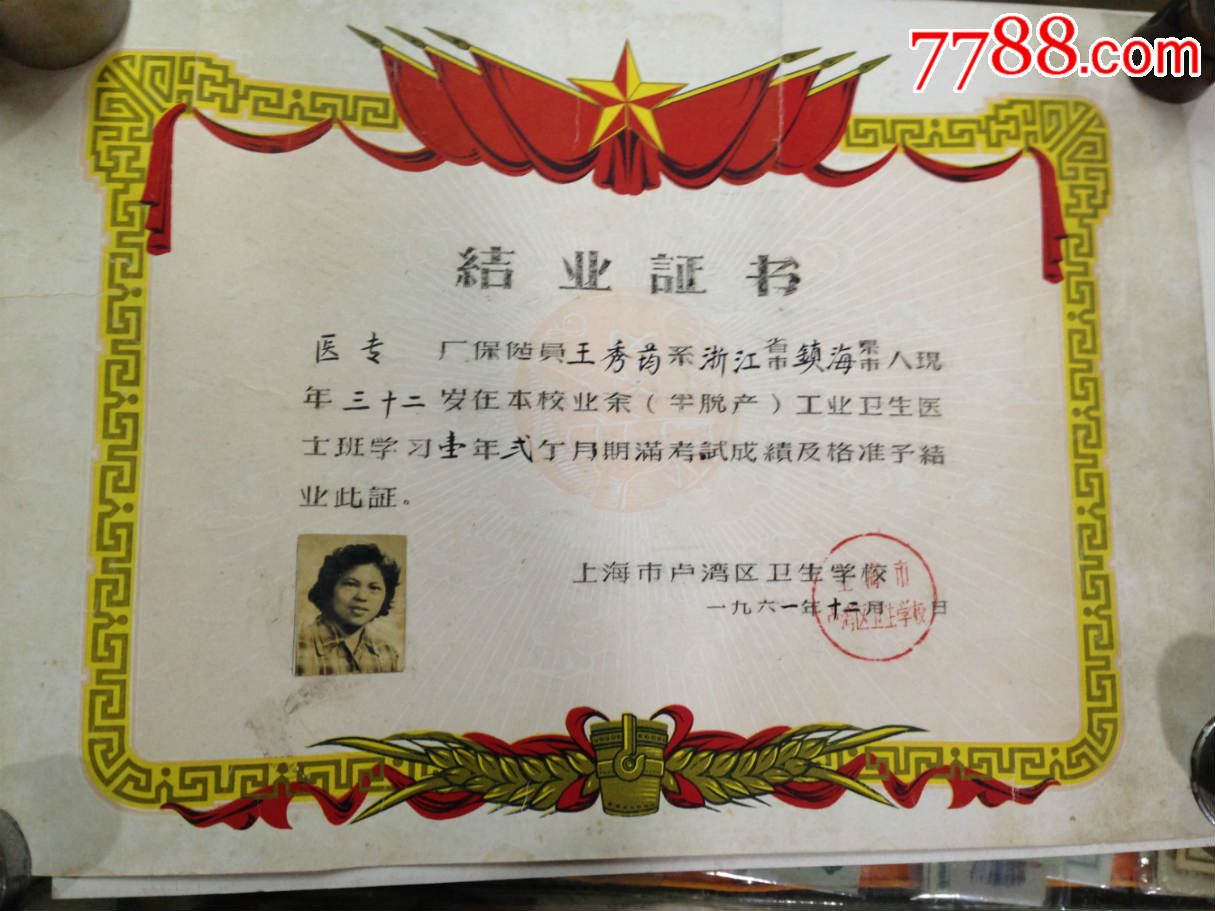 7788.com
結业証书
医专 厂保健員王秀荺系浙江省市鎮海県市人現
年三十二岁在本校业余（半脱产）工业卫生医
士班学习壹年弍个月期满考試成績及格准予結
业此証。
上海市卢湾区卫生学校
一九六一年十二月 日
上海市
卢湾区卫生学校